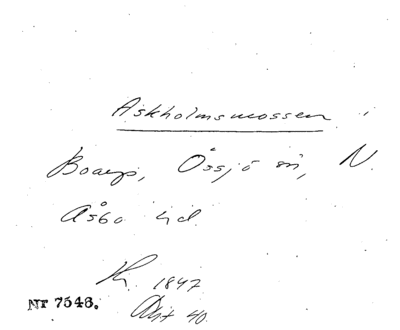 Askholmsmossen
Boarp, Össjö sn, N.
Åsbo hd.
K. 1847
Avst 40.
Nr 7548.